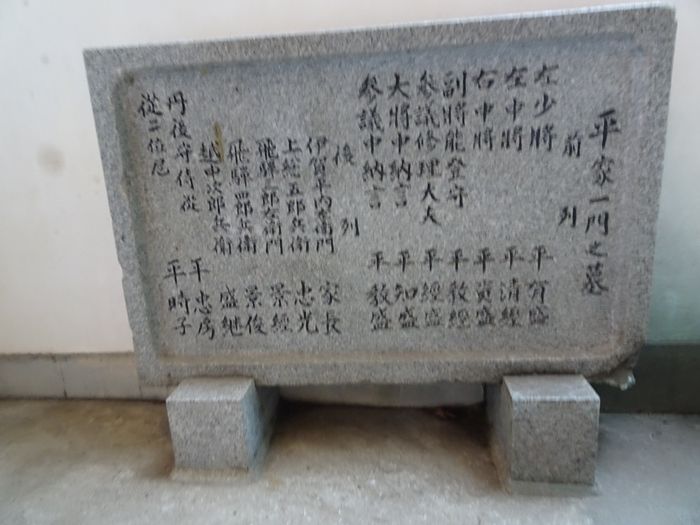 平家一門之墓
前列
左少將 平有盛
左中將 平清經
右中將 平資盛
副將能登守 平教經
参議修理大夫 平經盛
大將中納言 平知盛
参議中納言 平教盛
後列
伊賀平内左衛門 家長
上総五郎兵衛 忠光
飛騨三郎左衛門 景經
飛騨四郎兵衛 景俊
越中次郎兵衛 盛継
丹後守侍従 平忠房
從二位尼 平時子